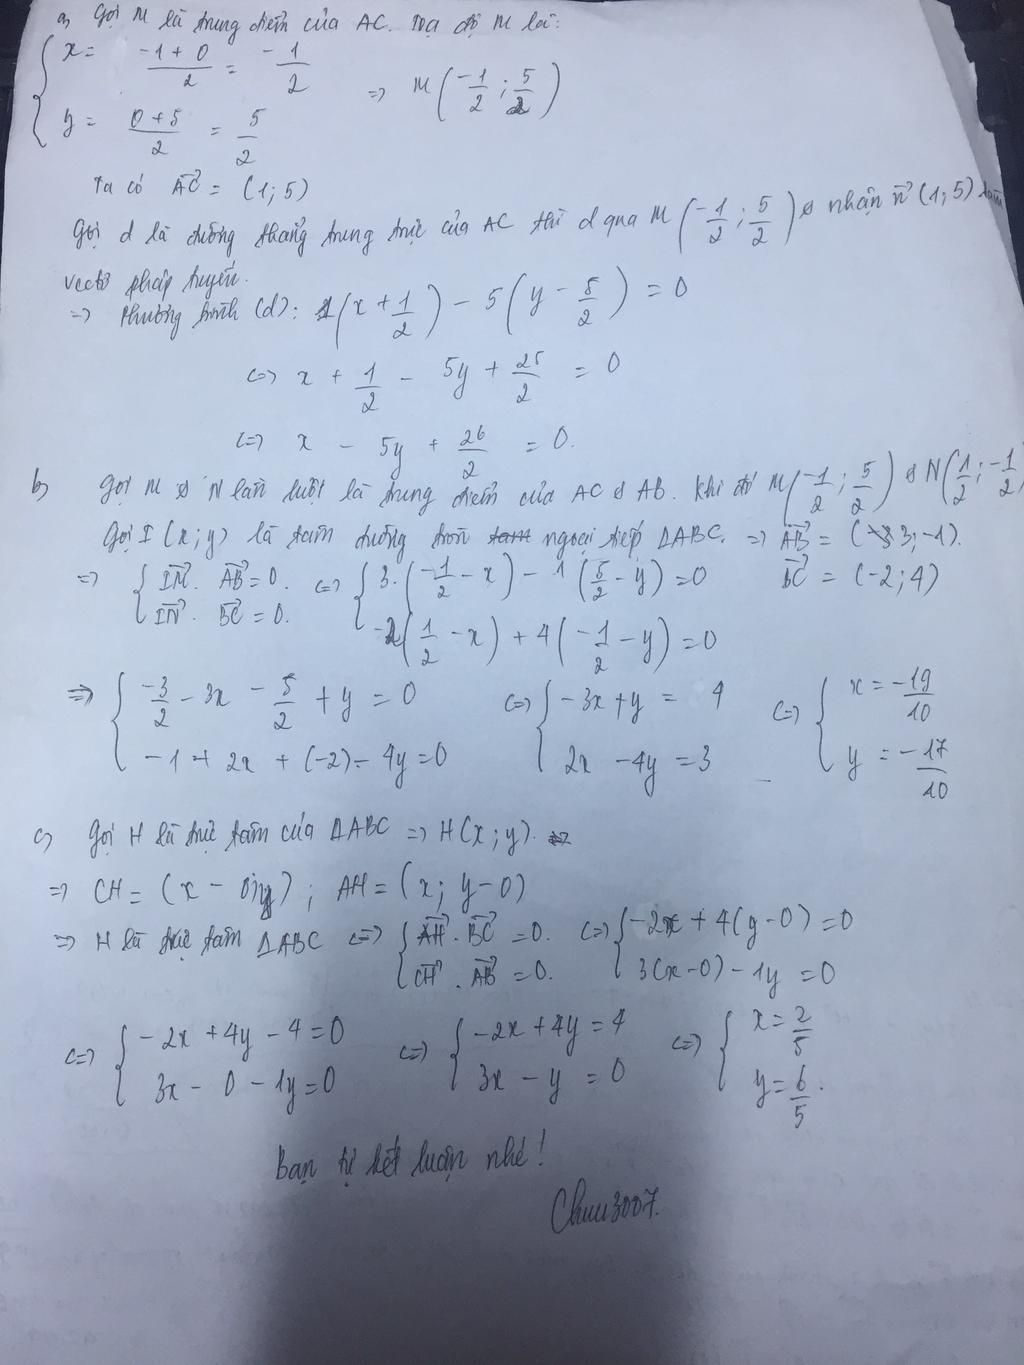 a) Gọi M là trung điểm của AC. Toạ độ M là:
{ x = (-1+0)/2 = -1/2
{ y = (0+5)/2 = 5/2 => M(-1/2; 5/2)
Ta có AC→ = (1; 5)
Gọi d là đường thẳng trung trực của AC thì d qua M(-1/2; 5/2) & nhận n→(1; 5) làm
vectơ pháp tuyến.
=> Phương trình (d): 1(x + 1/2) - 5(y - 5/2) = 0
<=> x + 1/2 - 5y + 25/2 = 0
<=> x - 5y + 26/2 = 0.
b) Gọi M & N lần lượt là trung điểm của AC & AB. Khi đó M(-1/2; 5/2) & N(1/2; -1/2)
Gọi I(x; y) là tâm đường tròn ngoại tiếp ΔABC. => AB→ = (3; -1).
=> { IM→ . AB→ = 0. <=> { 3.(-1/2 - x) - 1(5/2 - y) = 0 BC→ = (-2; 4)
{ IN→ . BC→ = 0. { -2(1/2 - x) + 4(-1/2 - y) = 0
=> { -3/2 - 3x - 5/2 + y = 0 <=> { -3x + y = 4 <=> { x = -19/10
{ -1 + 2x + (-2) - 4y = 0 { 2x - 4y = 3 { y = -17/10
c) Gọi H là trực tâm của ΔABC => H(x; y).
=> CH = (x - 0; y); AH = (x; y-0)
=> H là trực tâm ΔABC <=> { AH→ . BC→ = 0. <=> { -2x + 4(y-0) = 0
{ CH→ . AB→ = 0. { 3(x-0) - 1y = 0
<=> { -2x + 4y - 4 = 0 <=> { -2x + 4y = 4 <=> { x = 2/5
{ 3x - 0 - 1y = 0 { 3x - y = 0 { y = 6/5.
Bạn tự kết luận nhé!
Chuu3007.